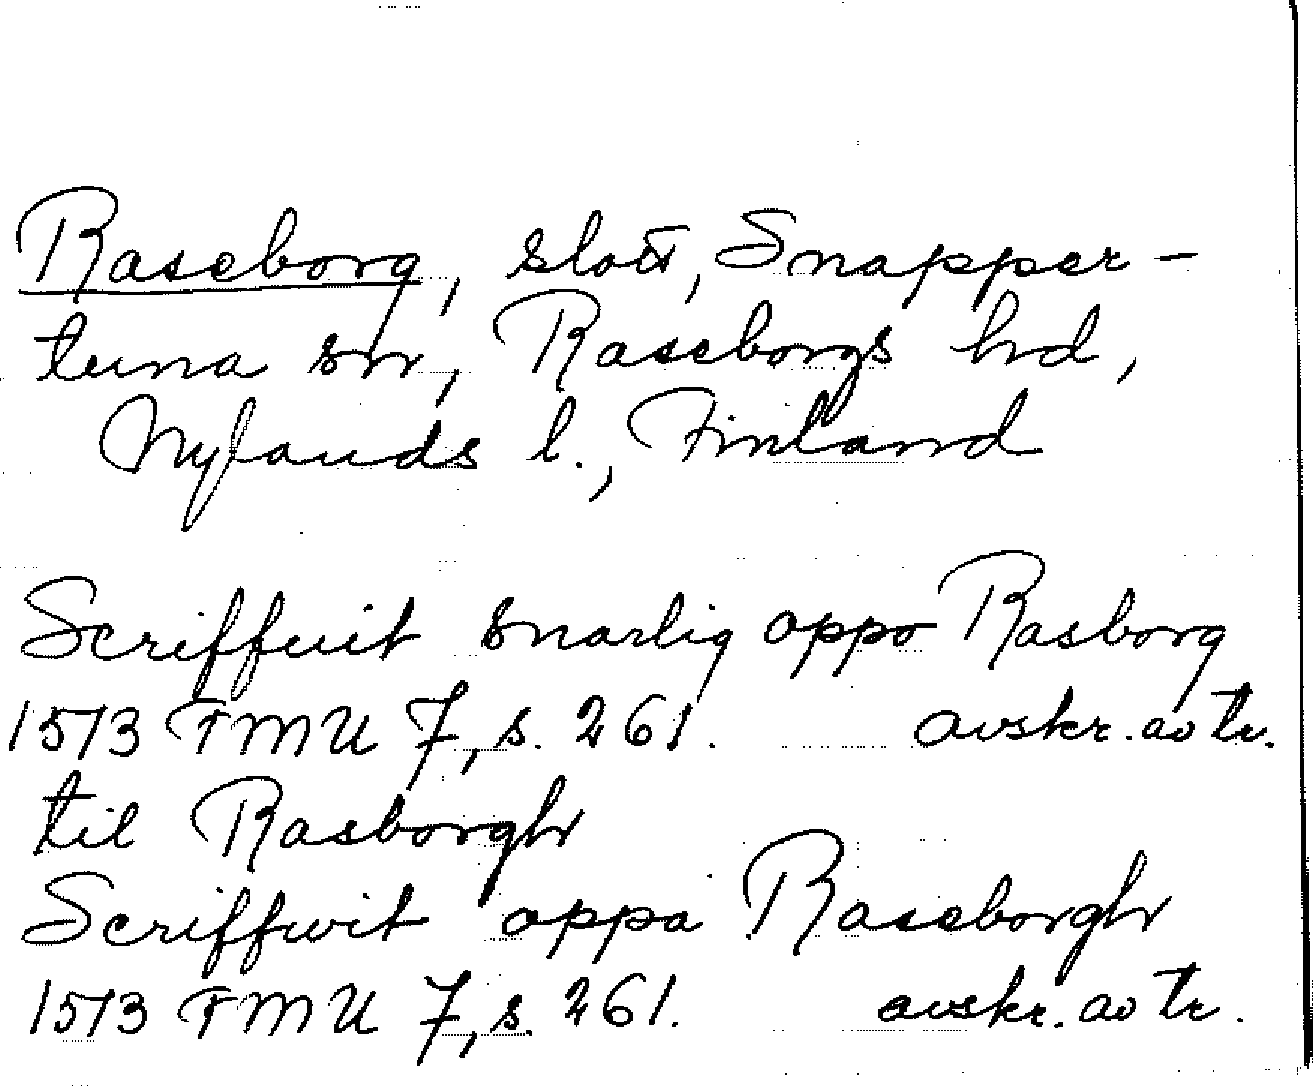 Raseborg, slott, Snapper-
tuna sn, Raseborgs hd,
Nylands l., Finland
Scriffuit snarlig oppo Rasborg
1513 FMU 7, s. 261. avskr. av tr.
til Rasborgh
Scriffwit oppa Raseborgh
1513 FMU 7, s. 261. avskr. av tr.